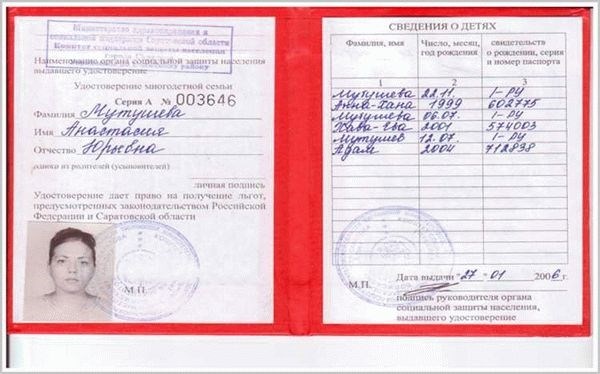 Министерство здравоохранения и
социальной поддержки Саратовской области
Комитет социальной защиты населения
города Саратова
району
Наименование органа социальной защиты населения
выдавшего удостоверение
Удостоверение многодетной семьи
Серия А № 003646
Фамилия Мутушева
Имя Анастасия
Отчество Юрьевна
один из родителей (усыновителей)
личная подпись
Удостоверение дает право на получение льгот,
предусмотренных законодательством Российской
Федерации и Саратовской области
М.П.
СВЕДЕНИЯ О ДЕТЯХ
Фамилия, имя Число, месяц, год рождения свидетельств о рождении, серия и номер паспорта
1 2 3
Мутушева 22.11. I-РУ
Анна-Хана 1999 602775
Мутушева 06.07. I-РУ
Хава-Ева 2001 574003
Мутушев 12.07. I-РУ
Адам 2004 712838
Дата выдачи "27" 01 2006 г.
М.П.
подпись руководителя органа
социальной защиты населения,
выдавшего удостоверение